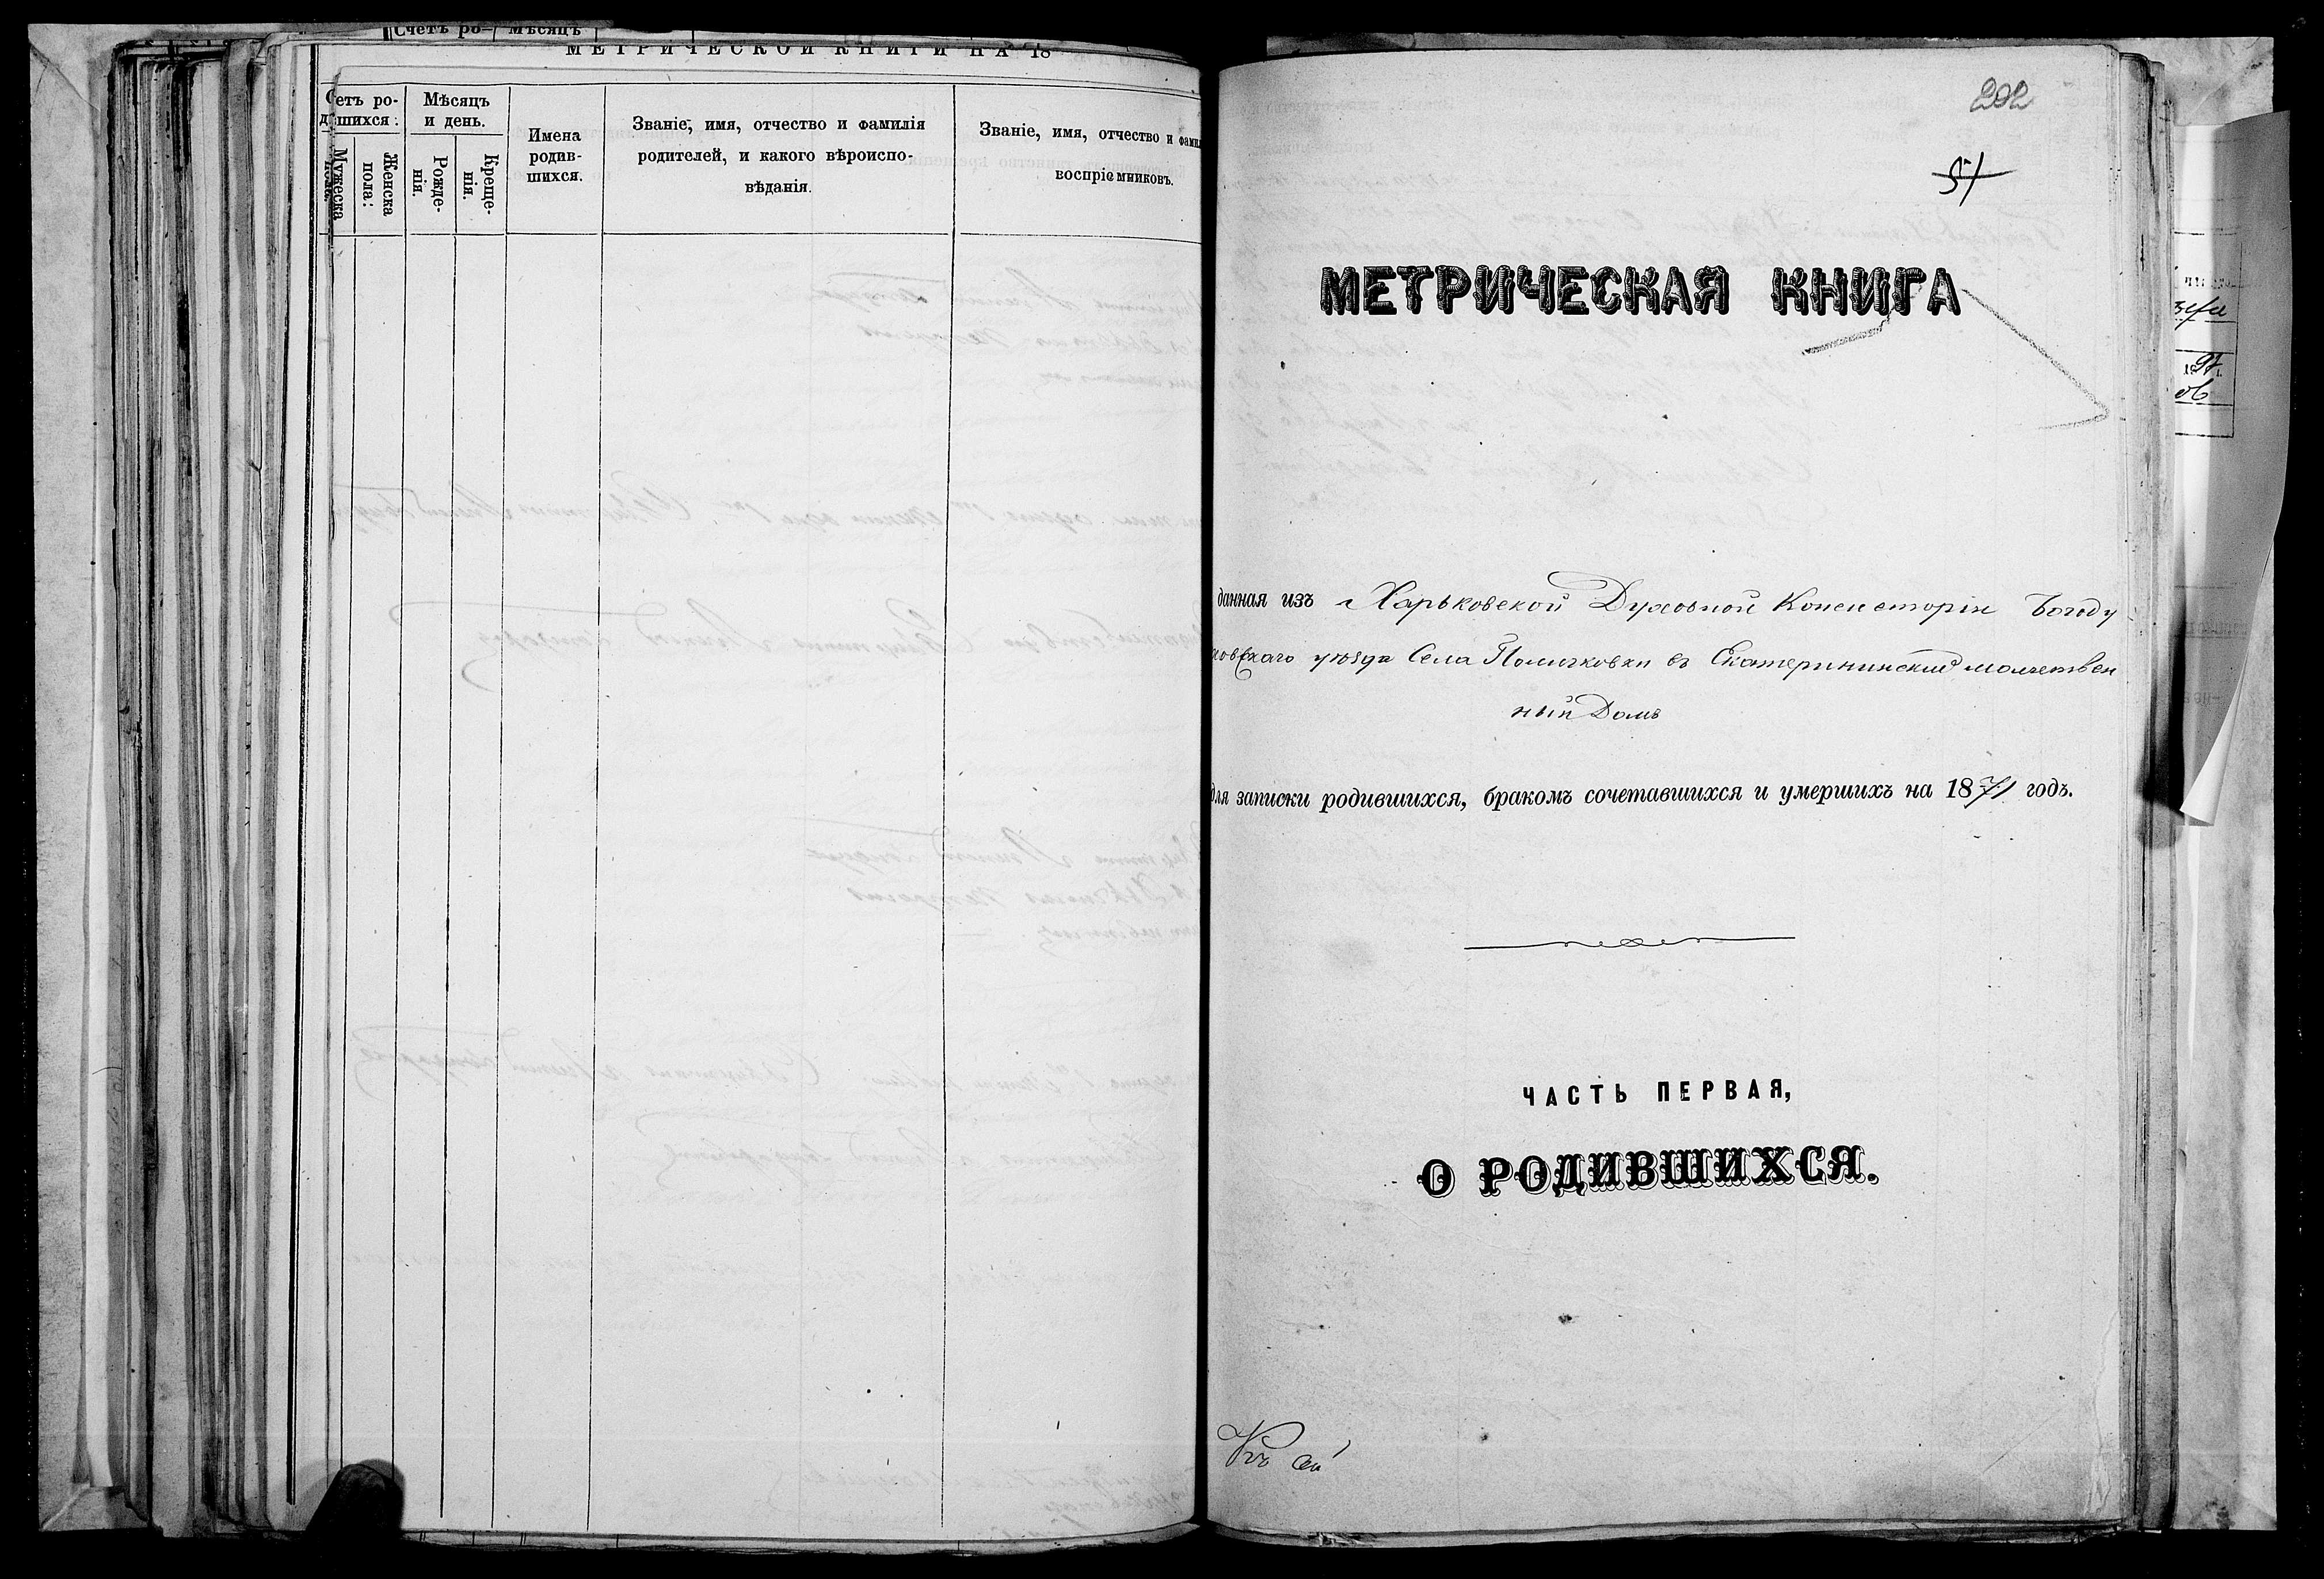 Счетъ ро- Мѣсяцъ
МЕТРИЧЕСКОЙ КНИГИ НА 18
Счетъ ро-
дившихся:
Мужеска
пола.
Женска
пола:
Мѣсяцъ
и день.
Рожде-
нія.
Креще-
нія.
Имена
родив-
шихся.
Званіе, имя, отчество и фамилія
родителей, и какого вѣроиспо-
вѣданія.
Званіе, имя, отчество и фами
воспріемниковъ.
202
51
МЕТРИЧЕСКАЯ КНИГА
данная изъ Харьковской Духовной Консисторіи Богоду
ховскаго уѣзда Села Полычковки въ Екатерининскій молитвен
ный Домъ
для записки родившихся, бракомъ сочетавшихся и умершихъ на 1871 годъ.
ЧАСТЬ ПЕРВАЯ,
О РОДИВШИХСЯ.